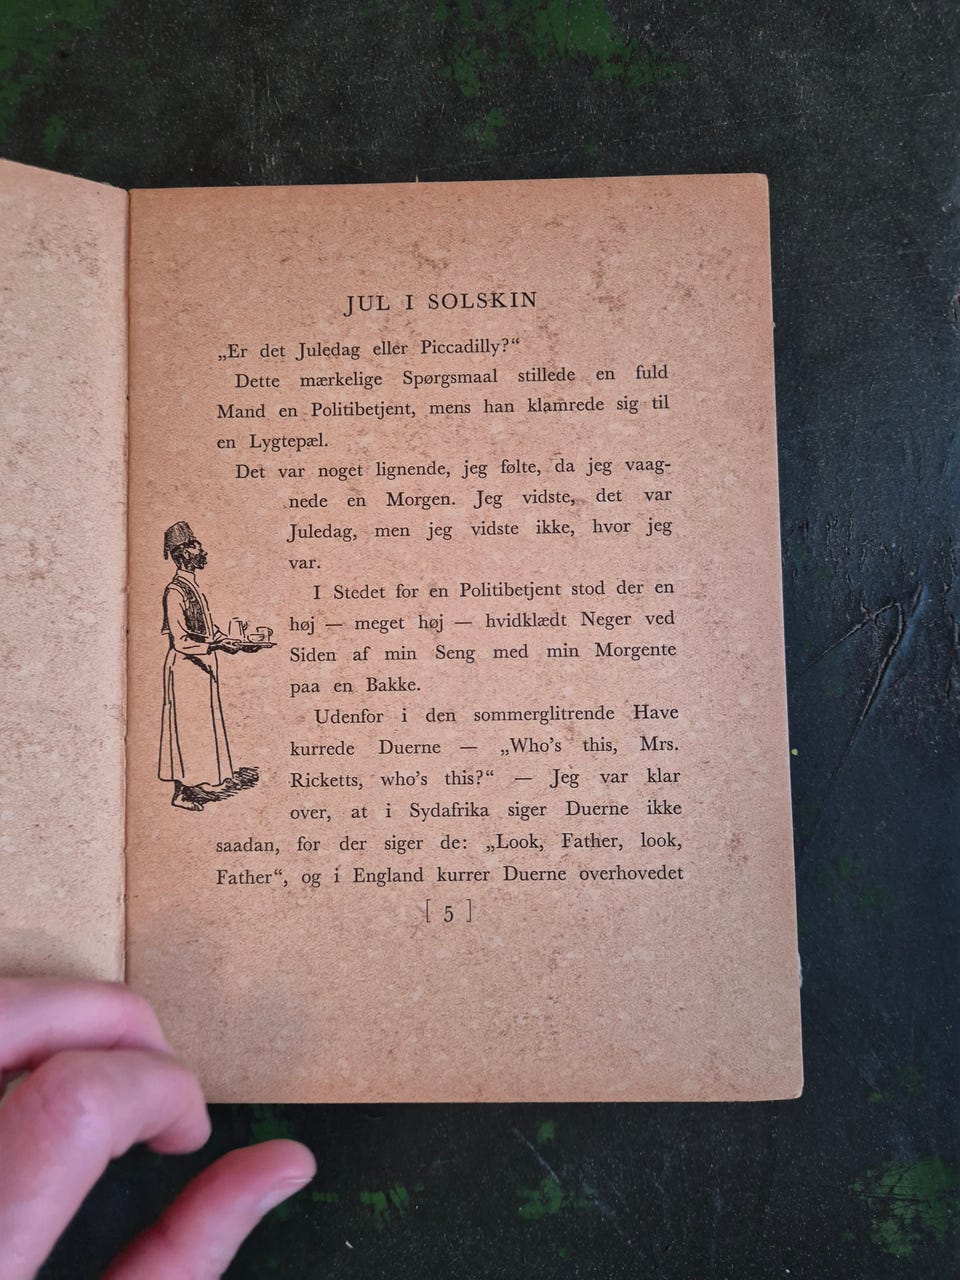 JUL I SOLSKIN
„Er det Juledag eller Piccadilly?“
Dette mærkelige Spørgsmaal stillede en fuld
Mand en Politibetjent, mens han klamrede sig til
en Lygtepæl.
Det var noget lignende, jeg følte, da jeg vaag-
nede en Morgen. Jeg vidste, det var
Juledag, men jeg vidste ikke, hvor jeg
var.
I Stedet for en Politibetjent stod der en
høj — meget høj — hvidklædt Neger ved
Siden af min Seng med min Morgente
paa en Bakke.
Udenfor i den sommerglitrende Have
kurrede Duerne — „Who's this, Mrs.
Ricketts, who's this?“ — Jeg var klar
over, at i Sydafrika siger Duerne ikke
saadan, for der siger de: „Look, Father, look,
Father“, og i England kurrer Duerne overhovedet
[ 5 ]